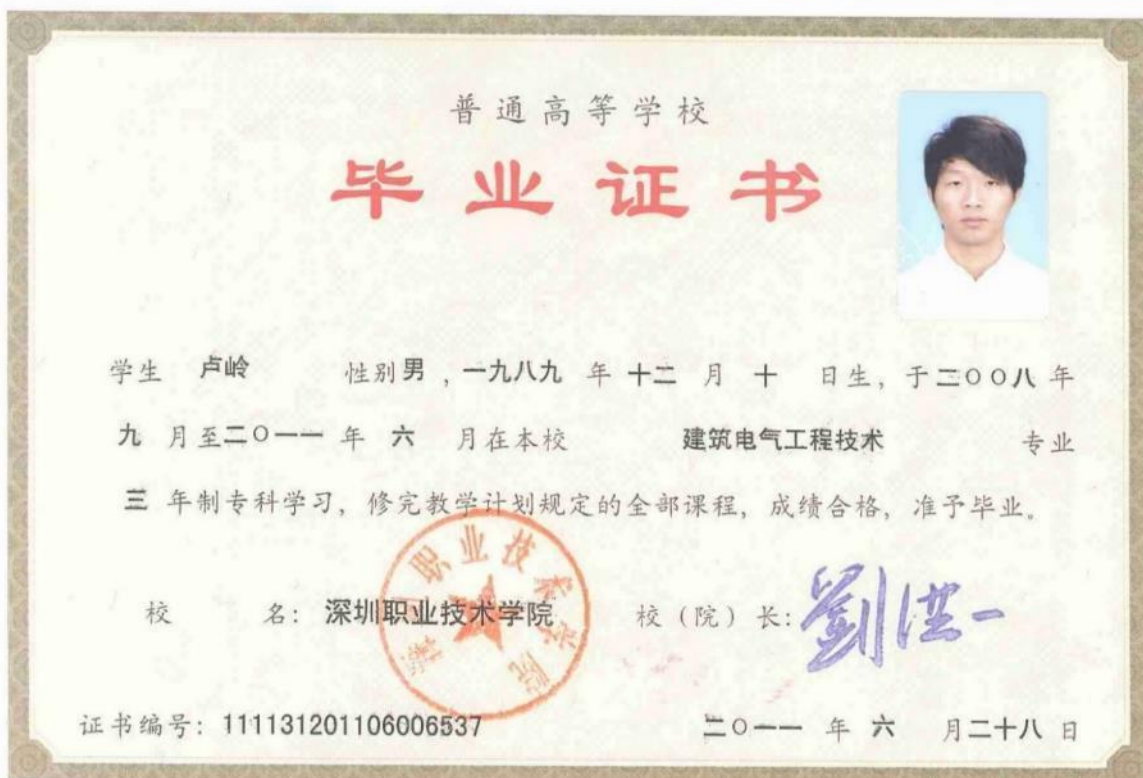 普通高等学校
毕业证书
学生 卢岭 性别男，一九八九 年 十二 月 十 日生，于二〇〇八 年
九 月至二〇一一 年 六 月在本校 建筑电气工程技术 专业
三 年制专科学习，修完教学计划规定的全部课程，成绩合格，准予毕业。
深圳职业技术学院
校 名：深圳职业技术学院 校（院）长：劉洪一
证书编号：111131201106006537 二〇一一 年 六 月二十八日